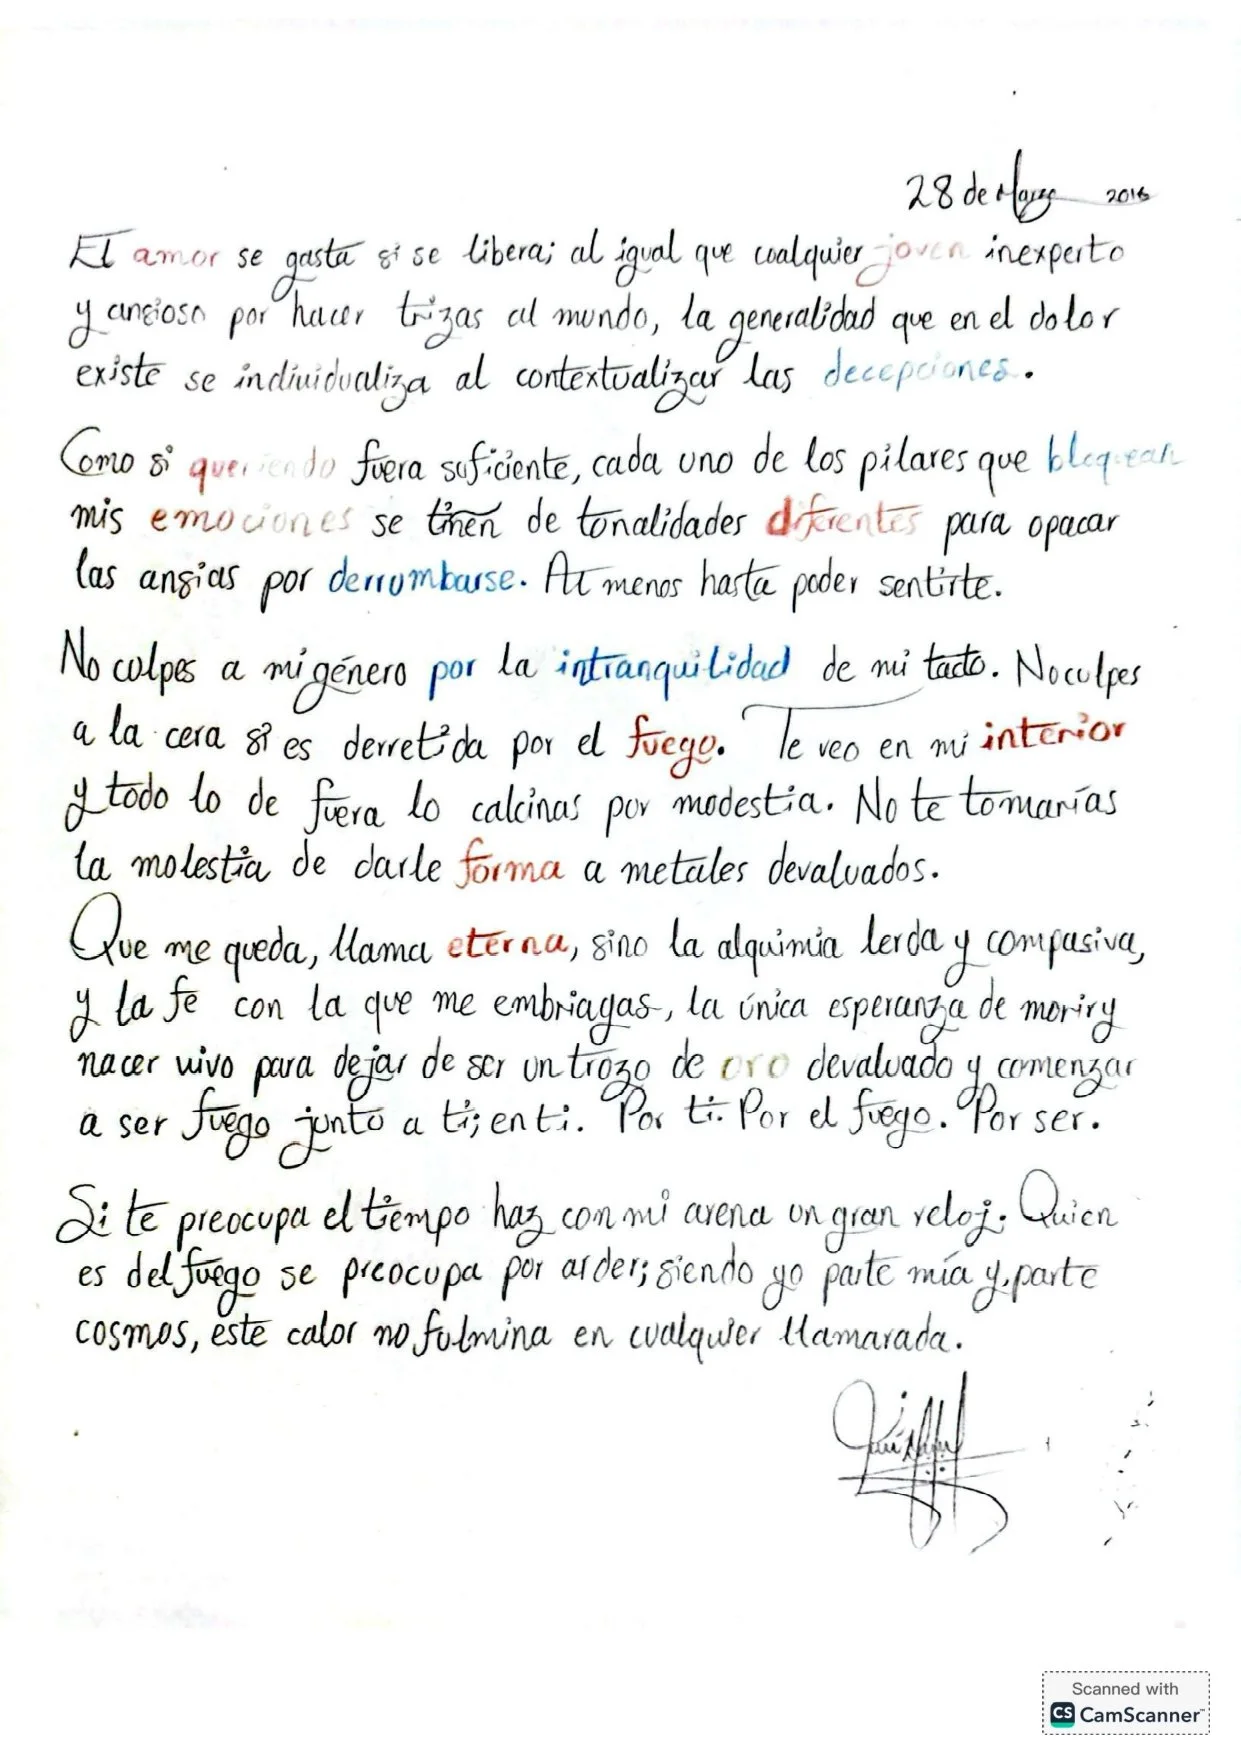 28 de Marzo 2016
El amor se gasta si se libera; al igual que cualquier joven inexperto
y ansioso por hacer trizas al mundo, la generalidad que en el dolor
existe se individualiza al contextualizar las decepciones.
Como si queriendo fuera suficiente, cada uno de los pilares que bloquean
mis emociones se tiñen de tonalidades diferentes para opacar
las ansias por derrumbarse. Al menos hasta poder sentirte.
No culpes a mi género por la intranquilidad de mi tacto. No culpes
a la cera si es derretida por el fuego. Te veo en mi interior
y todo lo de fuera lo calcinas por modestia. No te tomarías
la molestia de darle forma a metales devaluados.
Que me queda, llama eterna, sino la alquimia lerda y compasiva,
y la fe con la que me embriagas, la única esperanza de morir y
nacer vivo para dejar de ser un trozo de oro devaluado y comenzar
a ser fuego junto a ti; en ti. Por ti. Por el fuego. Por ser.
Si te preocupa el tiempo haz con mi arena un gran reloj. Quien
es del fuego se preocupa por arder; siendo yo parte mía y parte
cosmos, este calor no fulmina en cualquier llamarada.
Scanned with
CS CamScanner